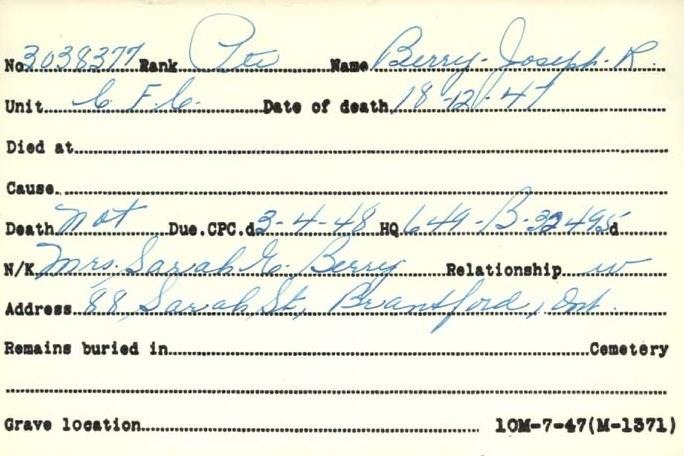 No. 3038377 Rank Pte Name Berry. Joseph. R.
Unit C.F.C. Date of death 18-12-47
Died at
Cause
Death not Due.CPC.d 3-4-48 HQ 649-B-32495 d
N/K Mrs. Sarah G. Berry Relationship w
Address 88 Sarah St., Brantford, Ont.
Remains buried in Cemetery
Grave location 10M-7-47(M-1371)